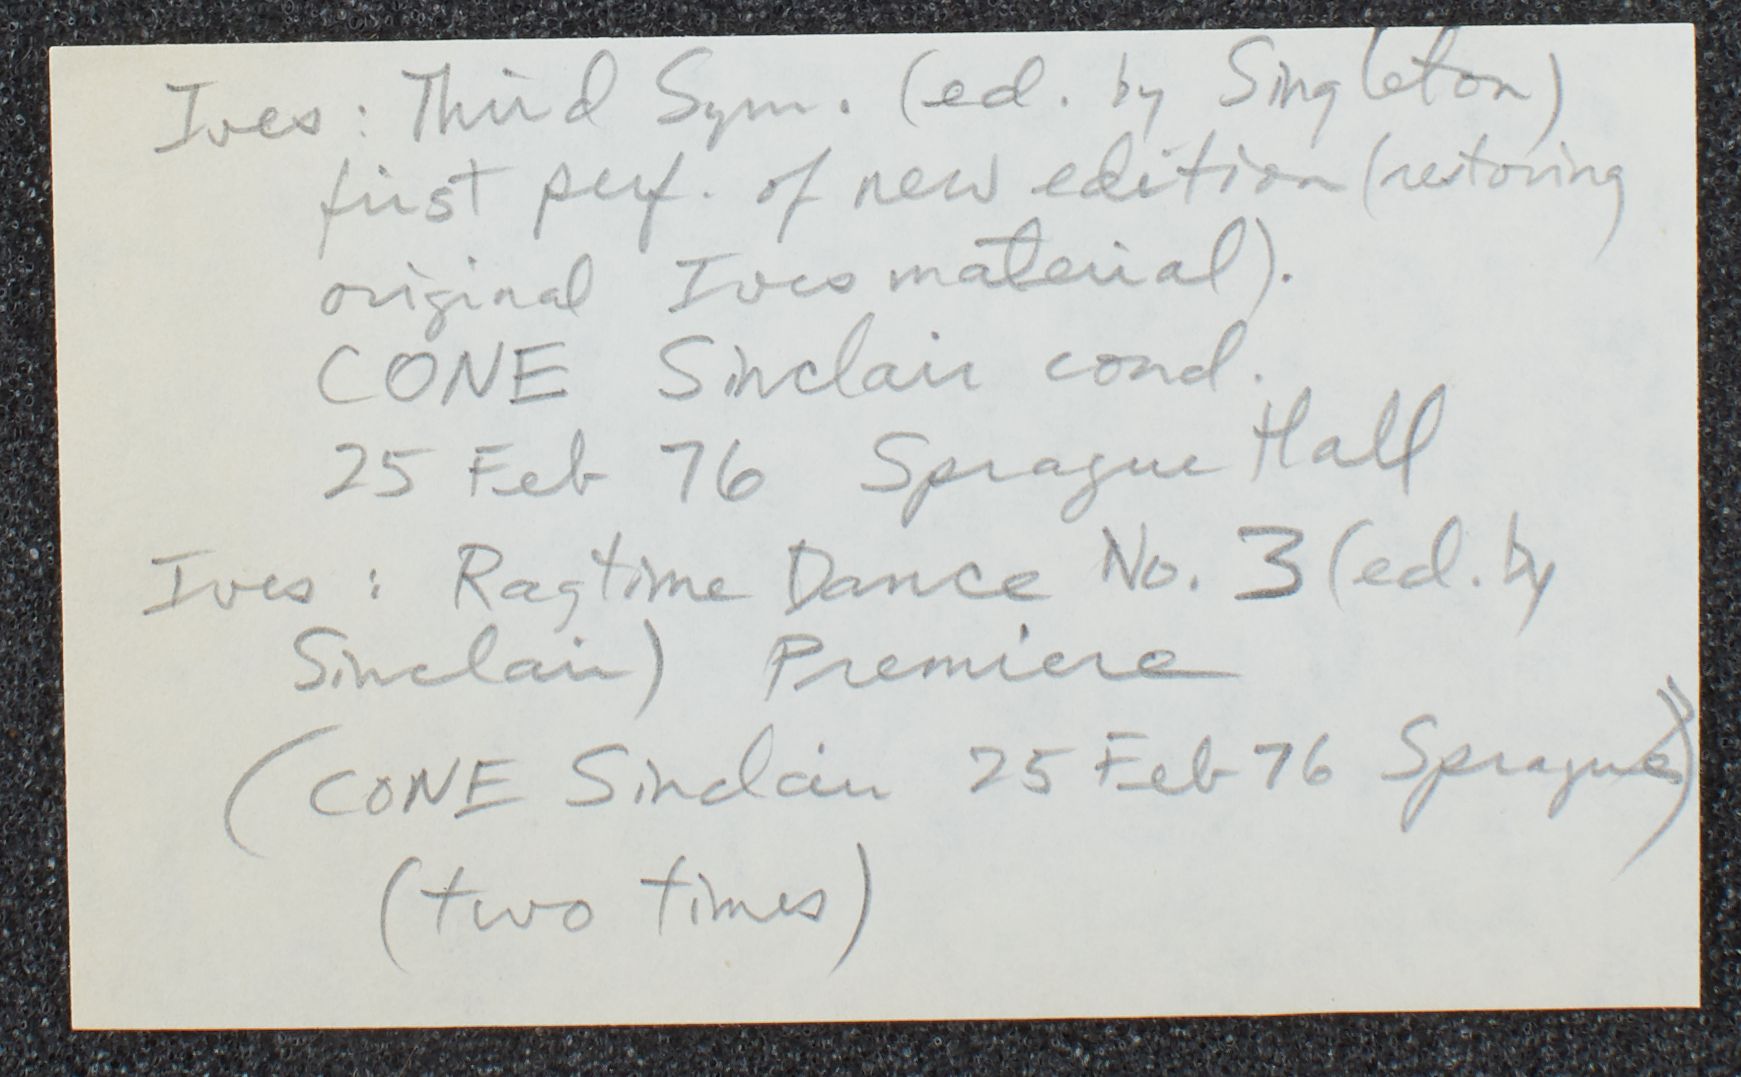 Ives: Third Sym. (ed. by Singleton)
first perf. of new edition (restoring
original Ives material).
CONE Sinclair cond.
25 Feb 76 Sprague Hall
Ives: Ragtime Dance No. 3 (ed. by
Sinclair) Premiere
(CONE Sinclair 25 Feb 76 Sprague)
(two times)